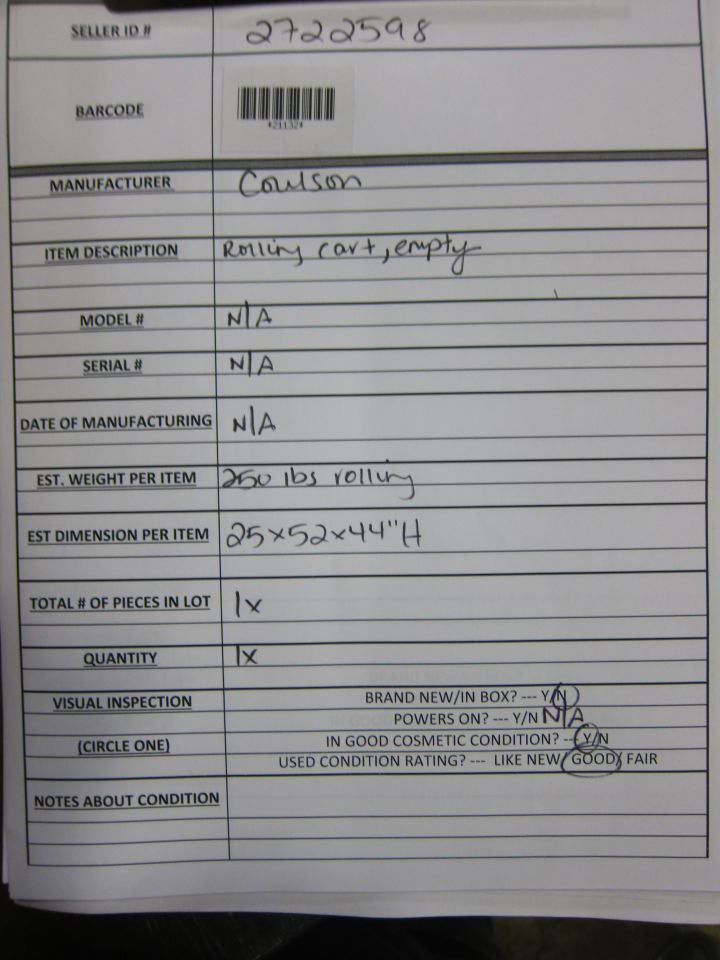 SELLER ID # 2722598
BARCODE
*21132*
MANUFACTURER Coulson
ITEM DESCRIPTION Rolling cart, empty
MODEL # N/A
SERIAL # N/A
DATE OF MANUFACTURING N/A
EST. WEIGHT PER ITEM 250 lbs rolling
EST DIMENSION PER ITEM 25x52x44"H
TOTAL # OF PIECES IN LOT 1x
QUANTITY 1x
VISUAL INSPECTION BRAND NEW/IN BOX? --- Y/N
POWERS ON? --- Y/N N/A
(CIRCLE ONE) IN GOOD COSMETIC CONDITION? --- Y/N
USED CONDITION RATING? --- LIKE NEW/ GOOD/ FAIR
NOTES ABOUT CONDITION